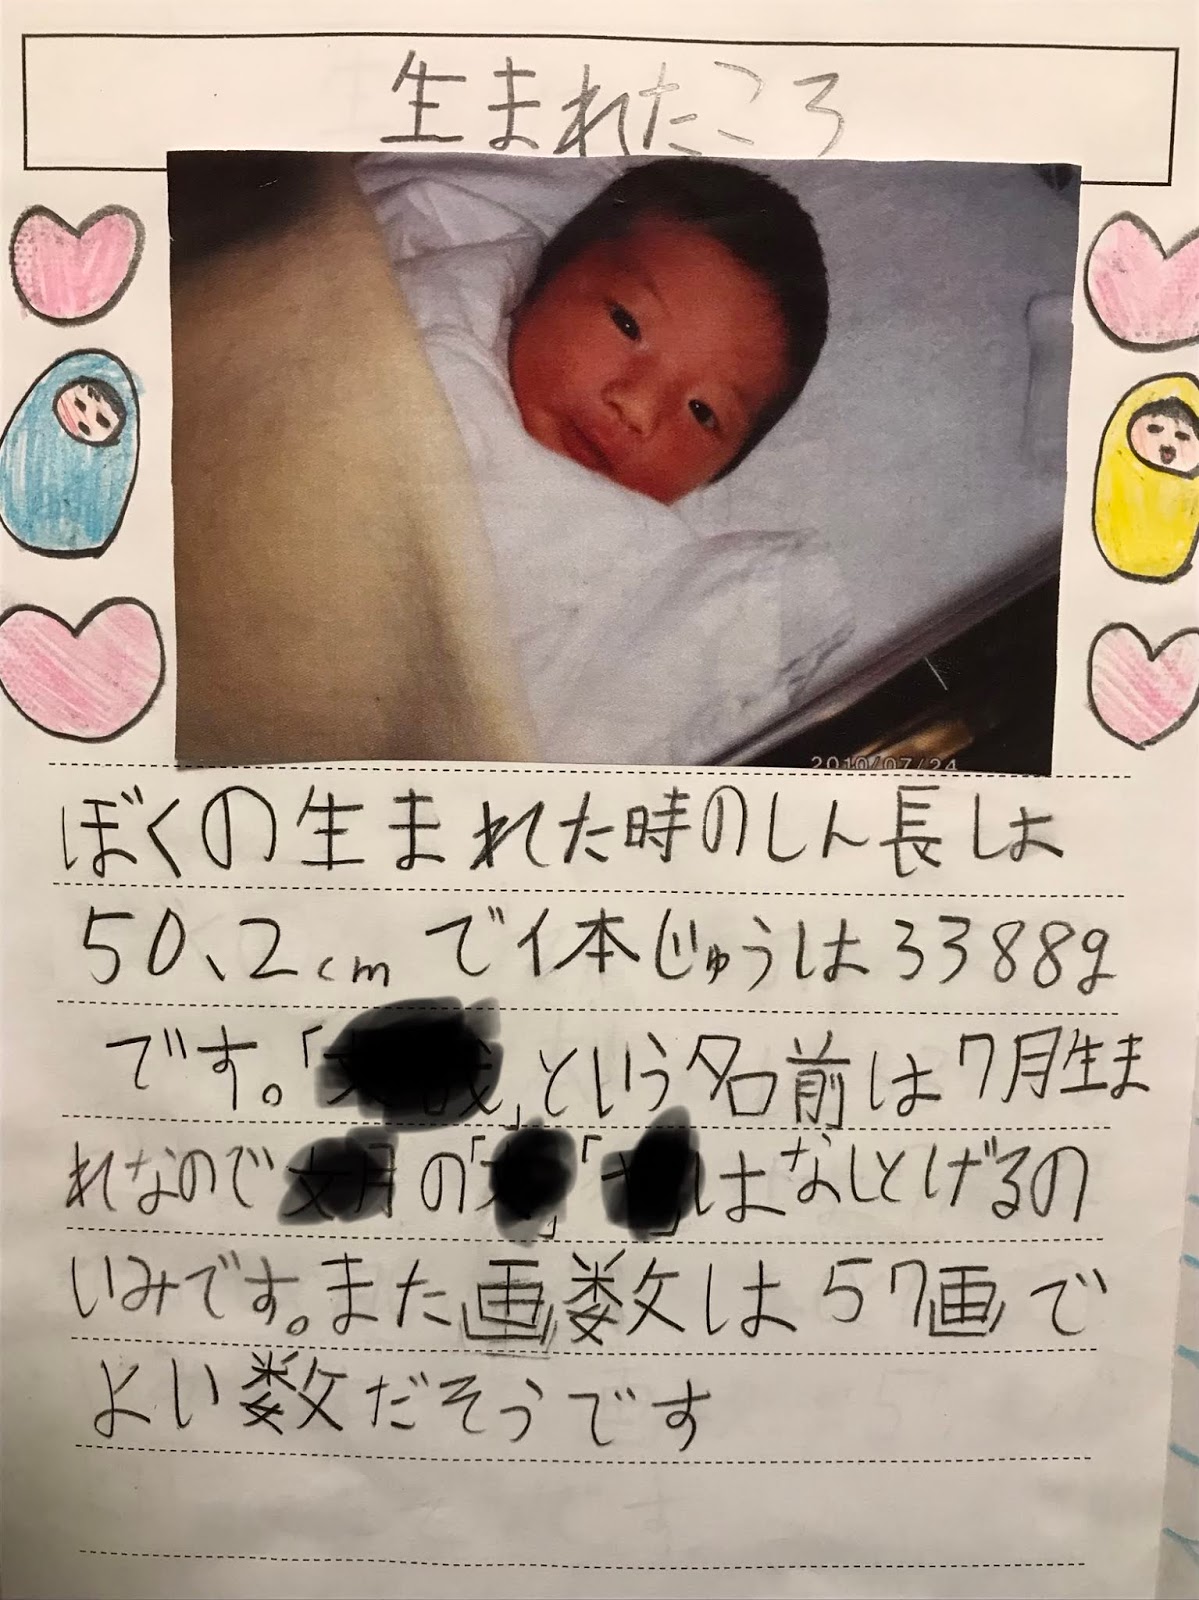 生まれたころ
2010/07/24
ぼくの生まれた時のしん長は
50、2cmで体じゅうは3388g
です。「」という名前は7月生ま
れなので月の「」「」はなしとげるの
いみです。また画数は57画で
よい数だそうです